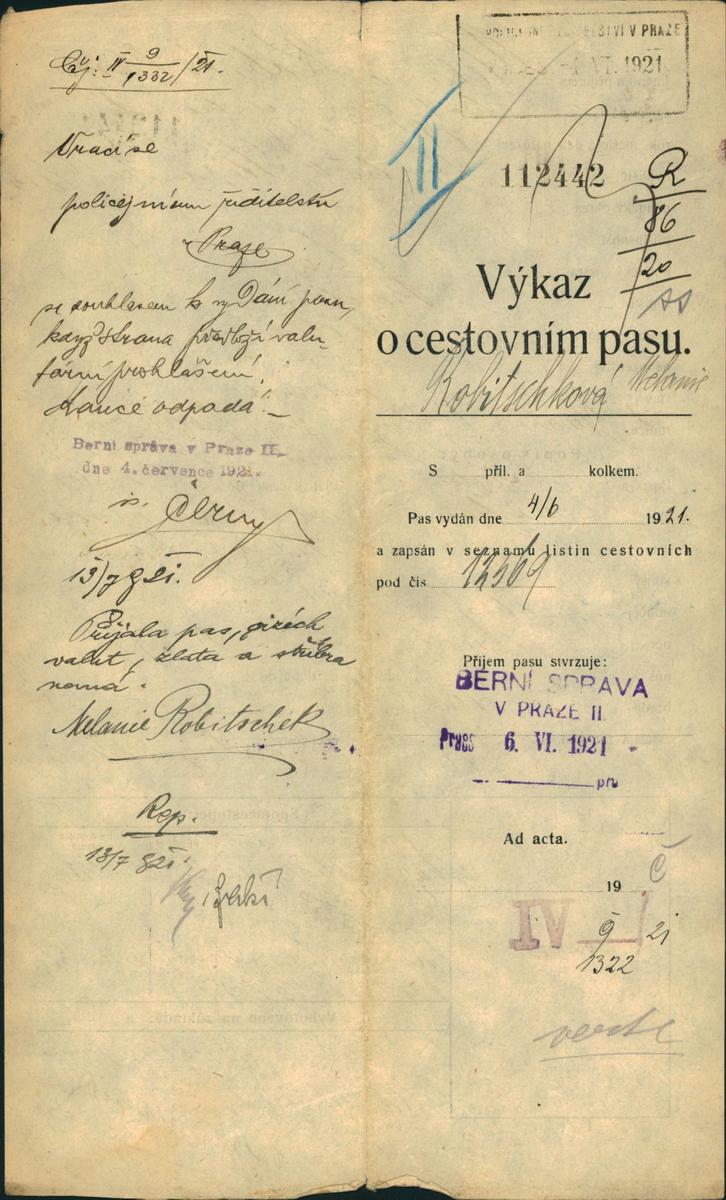 Čj: IV 9/1332/21.
Vrací se
policejnímu ředitelství
v Praze
se souhlasem k vydání pasu,
když strana předloží valu-
tární prohlášení.
Kauce odpadá.
Berní správa v Praze II.
dne 4. července 1921.
Černý
13/7 921.
Přijala pas, cizích
valut, zlata a stříbra
nemá.
Melanie Robitschek
Rep.
13/7 921.
V PRAZE
VI. 1921
II
112442
R
86
20
Výkaz
o cestovním pasu.
Robitschková Melanie
S příl. a kolkem.
Pas vydán dne 4/6 1921.
a zapsán v seznamu listin cestovních
pod čís 12369
Příjem pasu stvrzuje:
BERNÍ SPRÁVA
V PRAZE II.
6. VI. 1921
Ad acta.
19 Č
IV 9 21
1322
verte